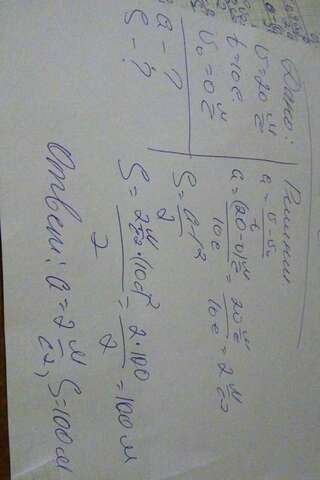 Дано:
v=20 м/с
t=10с.
v₀=0 м/с
a - ?
S - ?
Решение
a = (v-v₀)/t
a = (20-0) м/с / 10с = 20 м/с / 10с = 2 м/с²
S = a·t²/2
S = 2 м/с² · (10с)² / 2 = 2·100/2 = 100 м
Ответ: a = 2 м/с², S=100м